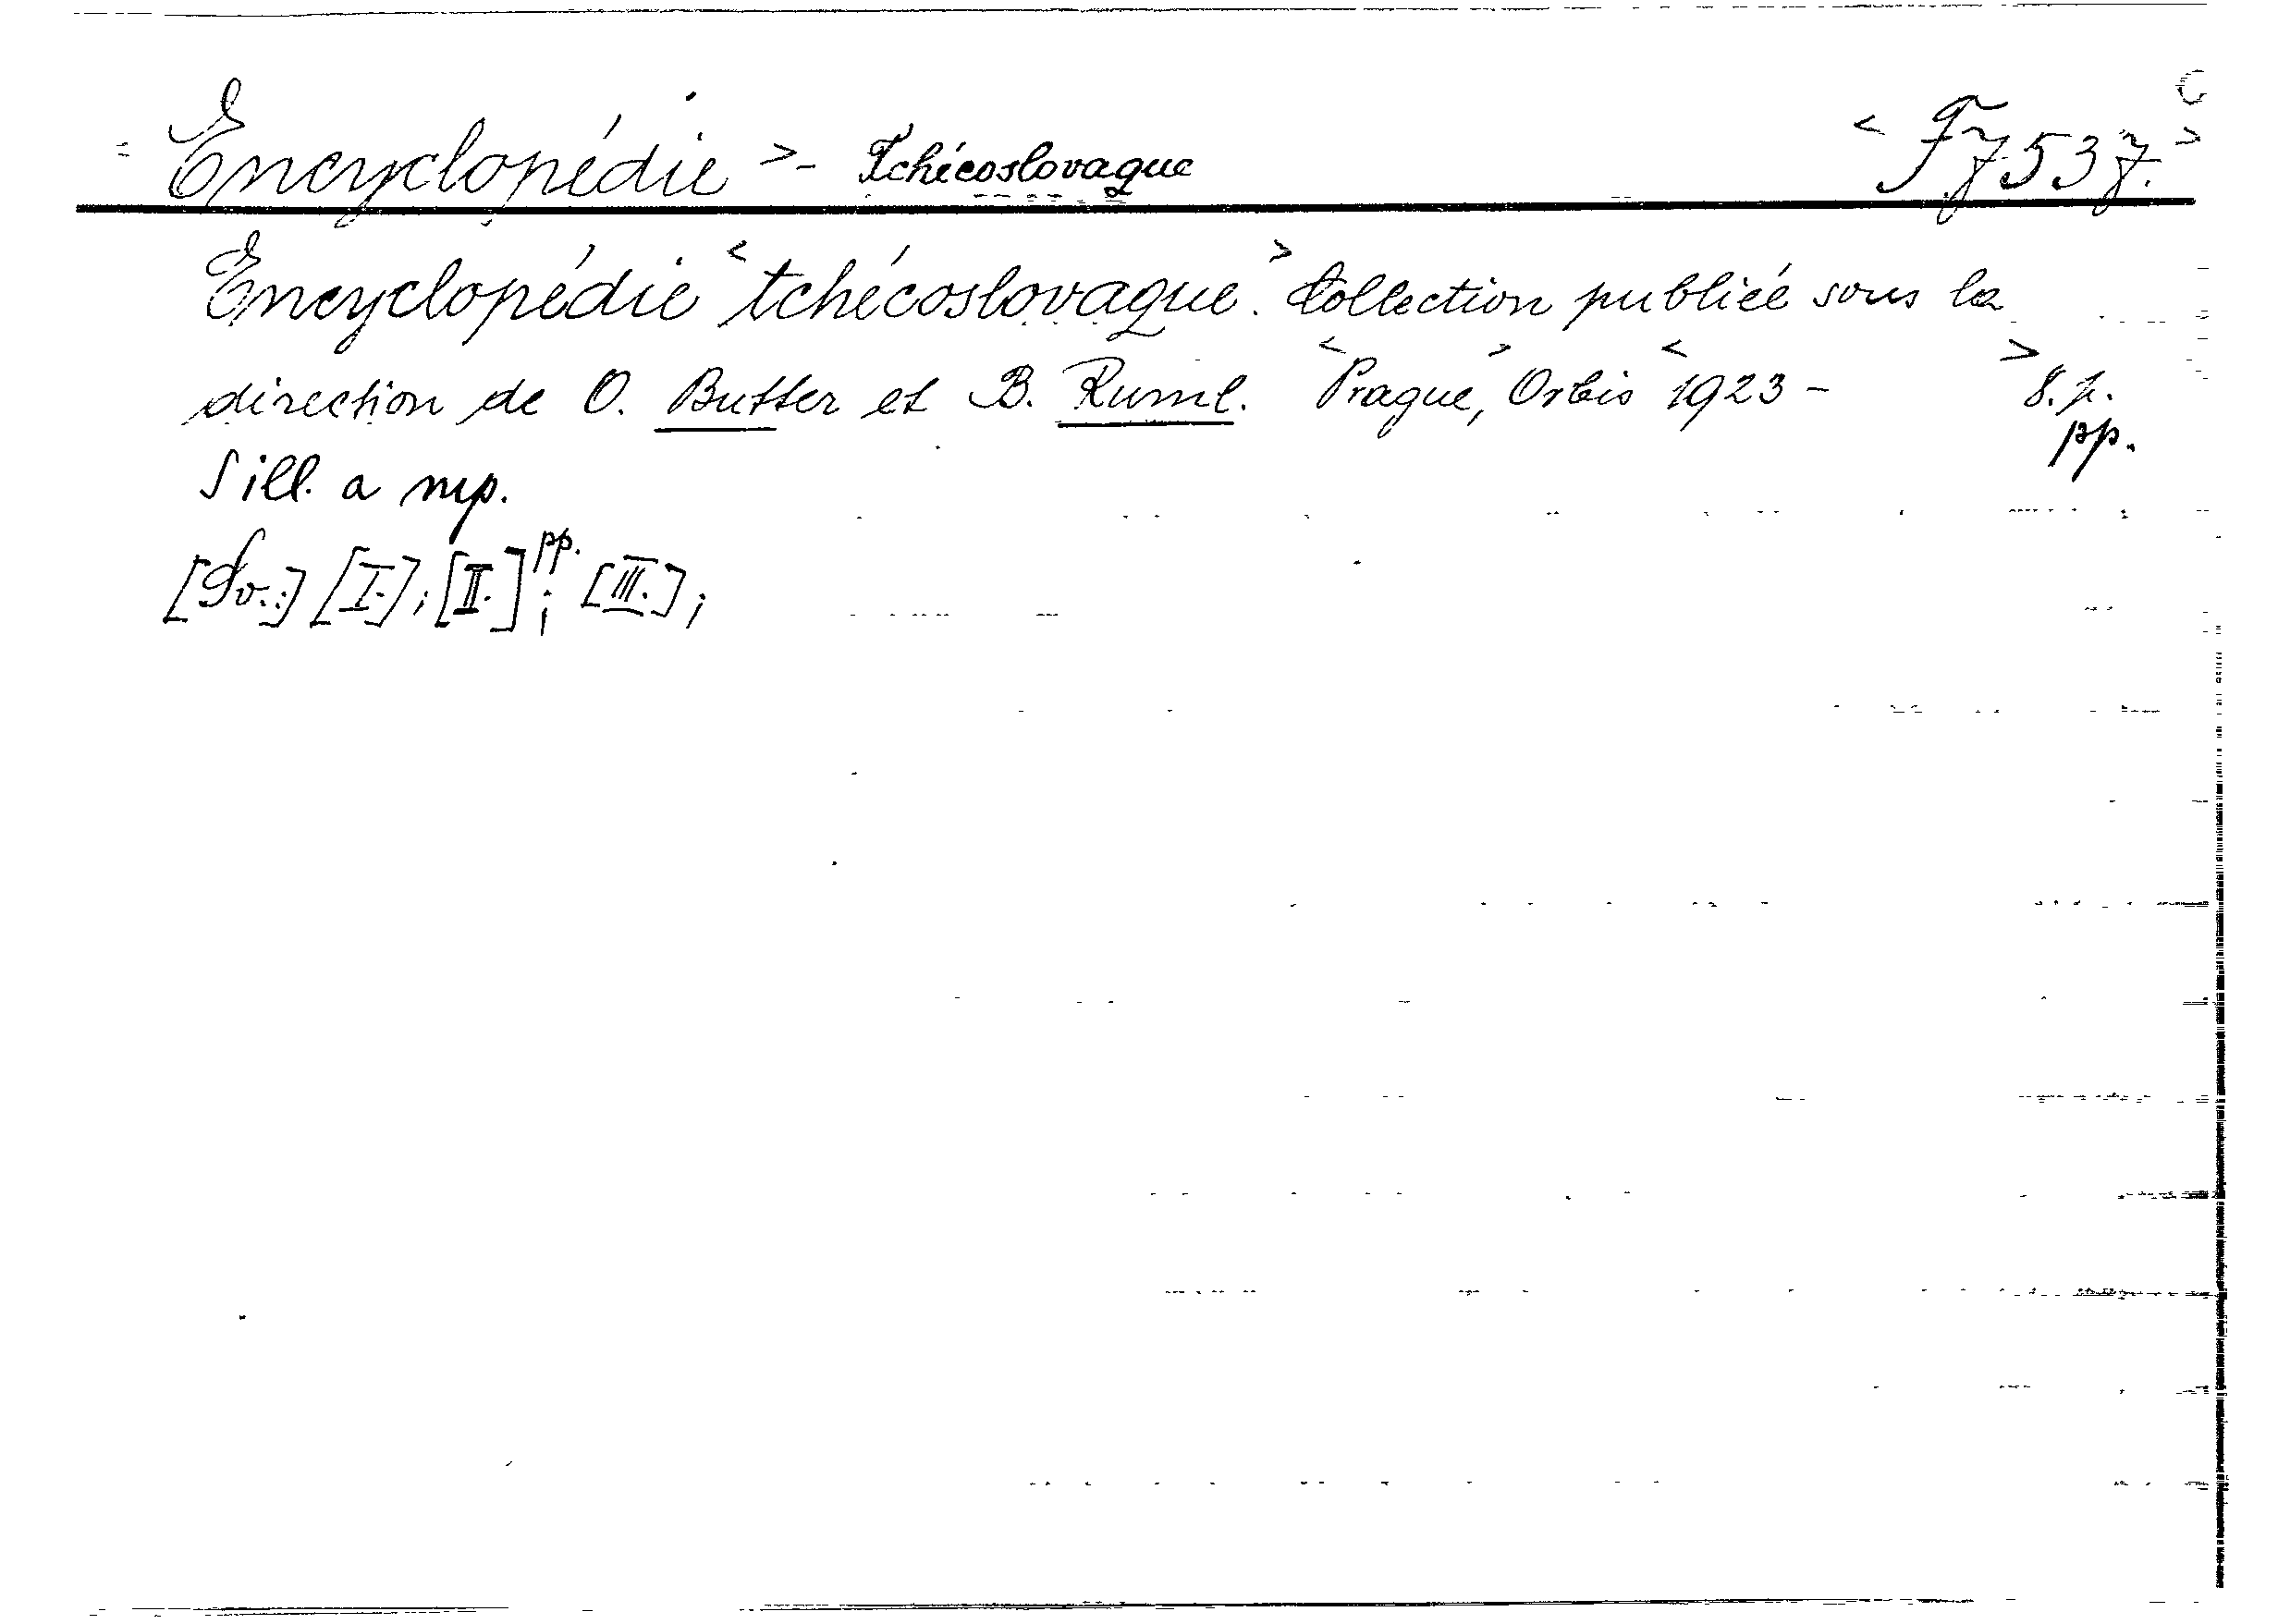 = Encyclopédie > - Tchécoslovaque < F 7537. >
Encyclopédie < tchécoslovaque. > Collection publiée sous la
direction de O. Butter et B. Ruml. < Prague, > Orbis < 1923 - > 8.p.
pp.
S ill. a mp.
[Sv.:] [I.]; [II.] pp.; [III.];